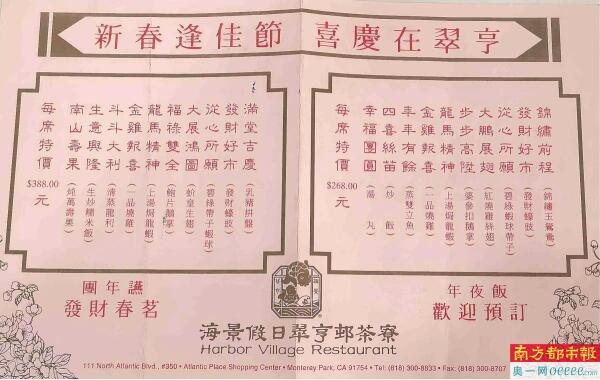 新春逢佳節 喜慶在翠亨
錦繡前程（錦繡玉鴛鴦）
發財好市（發財蠔豉）
從心所願（碧綠蝦球帶子）
大鵬展翅（紅燒雞絲翅）
步步高陞（婆參扣鵝掌）
龍馬精神（上湯焗龍蝦）
金雞報喜（一品燒雞）
年年有餘（蒸雙立魚）
四喜絲苗（炒飯）
幸福團圓（湯丸）
每席特價 $268.00元
滿堂吉慶（乳豬拼盤）
發財好市（發財蠔豉）
從心所願（碧綠帶子蝦球）
大展鴻圖（蚧皇生翅）
福祿雙全（鮑片鵝掌）
龍馬精神（上湯焗龍蝦）
金雞報喜（一品燒雞）
斗斗大利（清蒸龍利）
生意興隆（生炒糯米飯）
南山壽果（純萬壽果）
每席特價 $388.00元
團年讌
發財春茗
年夜飯
歡迎預訂
海景假日翠亨邨茶寮
Harbor Village Restaurant
111 North Atlantic Blvd., #350 • Atlantic Place Shopping Center • Monterey Park, CA 91754 • Tel: (818) 300-8833 • Fax: (818) 300-8707
南方都市報
奥一网oeeee.com